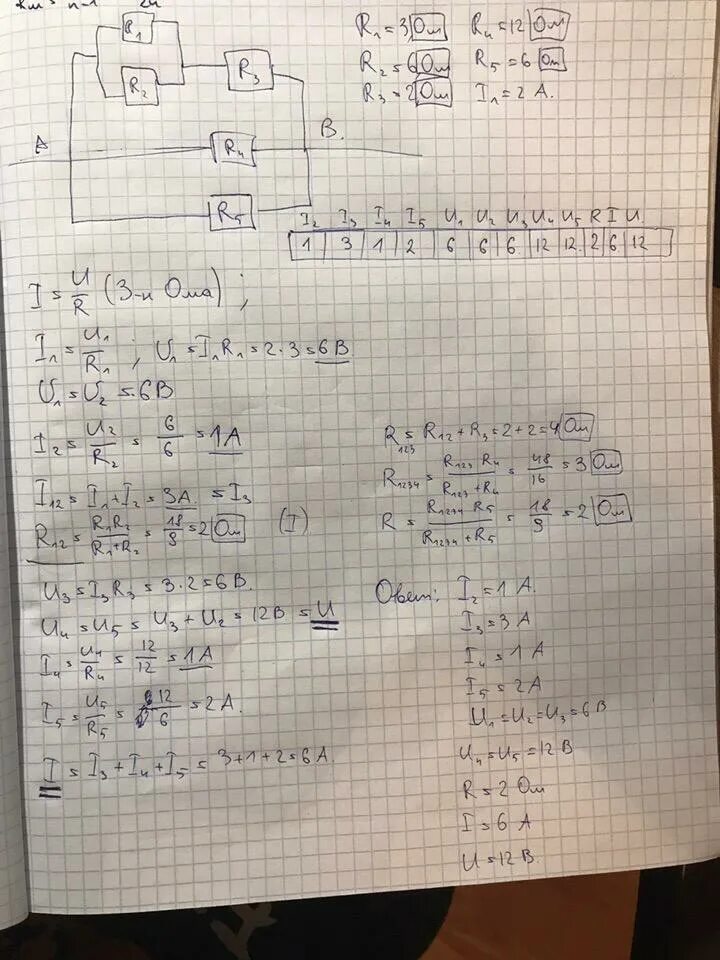 R₁ = 3 Ом R₄ = 12 Ом
R₂ = 6 Ом R₅ = 6 Ом
R₃ = 2 Ом I₁ = 2 А.
R₁
R₂
R₃
A
B.
R₄
R₅
I₂ I₃ I₄ I₅ U₁ U₂ U₃ U₄ U₅ R I U
1 3 1 2 6 6 6 12 12 2 6 12
I = U/R (З-н Ома);
I₁ = U₁/R₁ ; U₁ = I₁R₁ = 2·3 = 6 В
U₁ = U₂ = 6 В
I₂ = U₂/R₂ = 6/6 = 1 А
I₁₂ = I₁ + I₂ = 3 А. = I₃
R₁₂ = R₁R₂/(R₁+R₂) = 18/9 = 2 Ом (I)
U₃ = I₃R₃ = 3·2 = 6 В.
U₄ = U₅ = U₃ + U₂ = 12 В = U
I₄ = U₄/R₄ = 12/12 = 1 А
I₅ = U₅/R₅ = 12/6 = 2 А.
I = I₃ + I₄ + I₅ = 3+1+2 = 6 А.
R₁₂₃ = R₁₂ + R₃ = 2+2 = 4 Ом
R₁₂₃₄ = R₁₂₃ R₄/(R₁₂₃ + R₄) = 48/16 = 3 Ом
R = R₁₂₃₄ R₅/(R₁₂₃₄ + R₅) = 18/9 = 2 Ом
Ответ: I₂ = 1 А.
I₃ = 3 А
I₄ = 1 А
I₅ = 2 А
U₁ = U₂ = U₃ = 6 В
U₄ = U₅ = 12 В
R = 2 Ом
I = 6 А
U = 12 В.